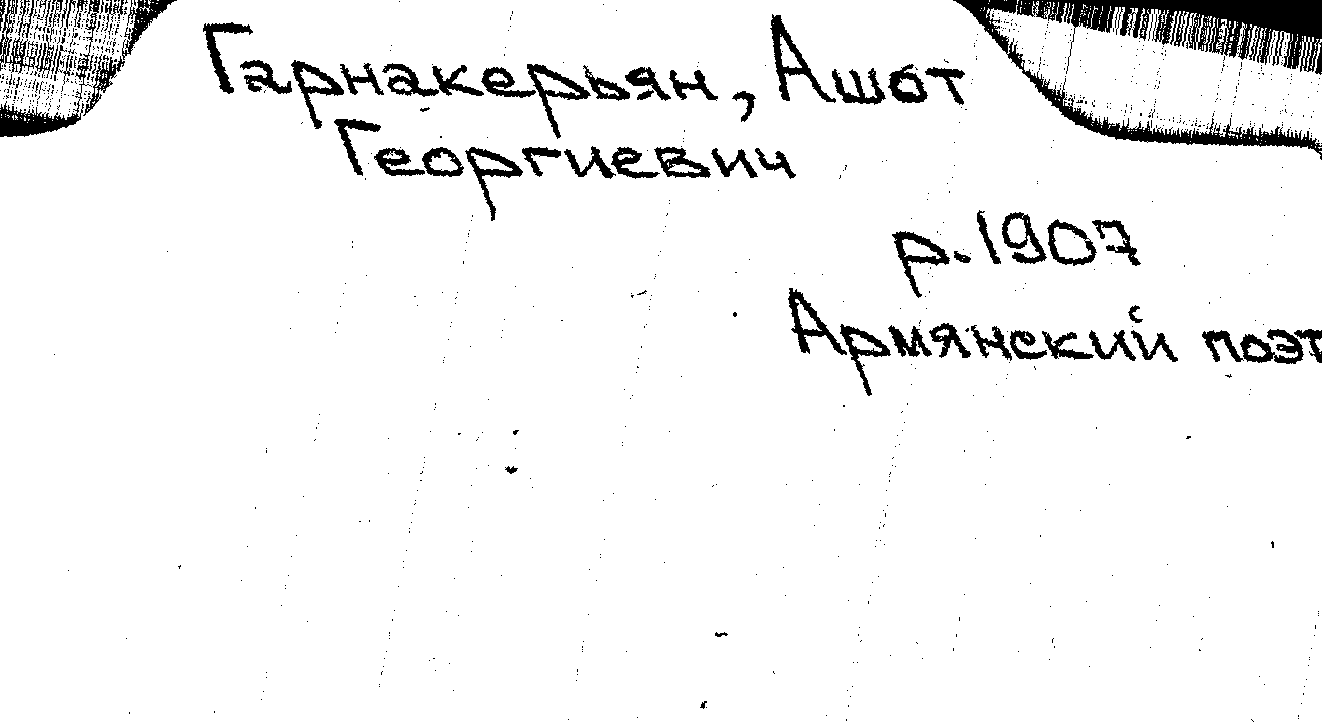 Гарнакерьян, Ашот
Георгиевич
р. 1907
Армянский поэт